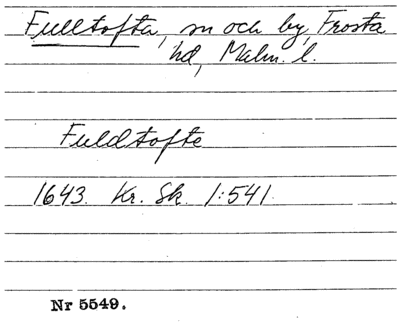 Fulltofta, sn och by, Frosta
hd, Malm. l.
Fuldtofte
1643. Kr. Sk. 1:541.
Nr 5549.